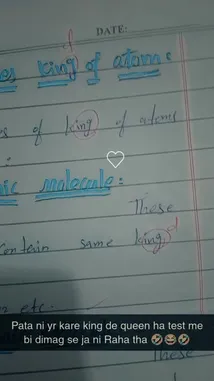 DATE:
es king of atom:
d
es of king of atoms
ic molecule:
These
contain same king
d
etc.
Pata ni yr kare king de queen ha test me
bi dimag se ja ni Raha tha 🤣😂🤣
These